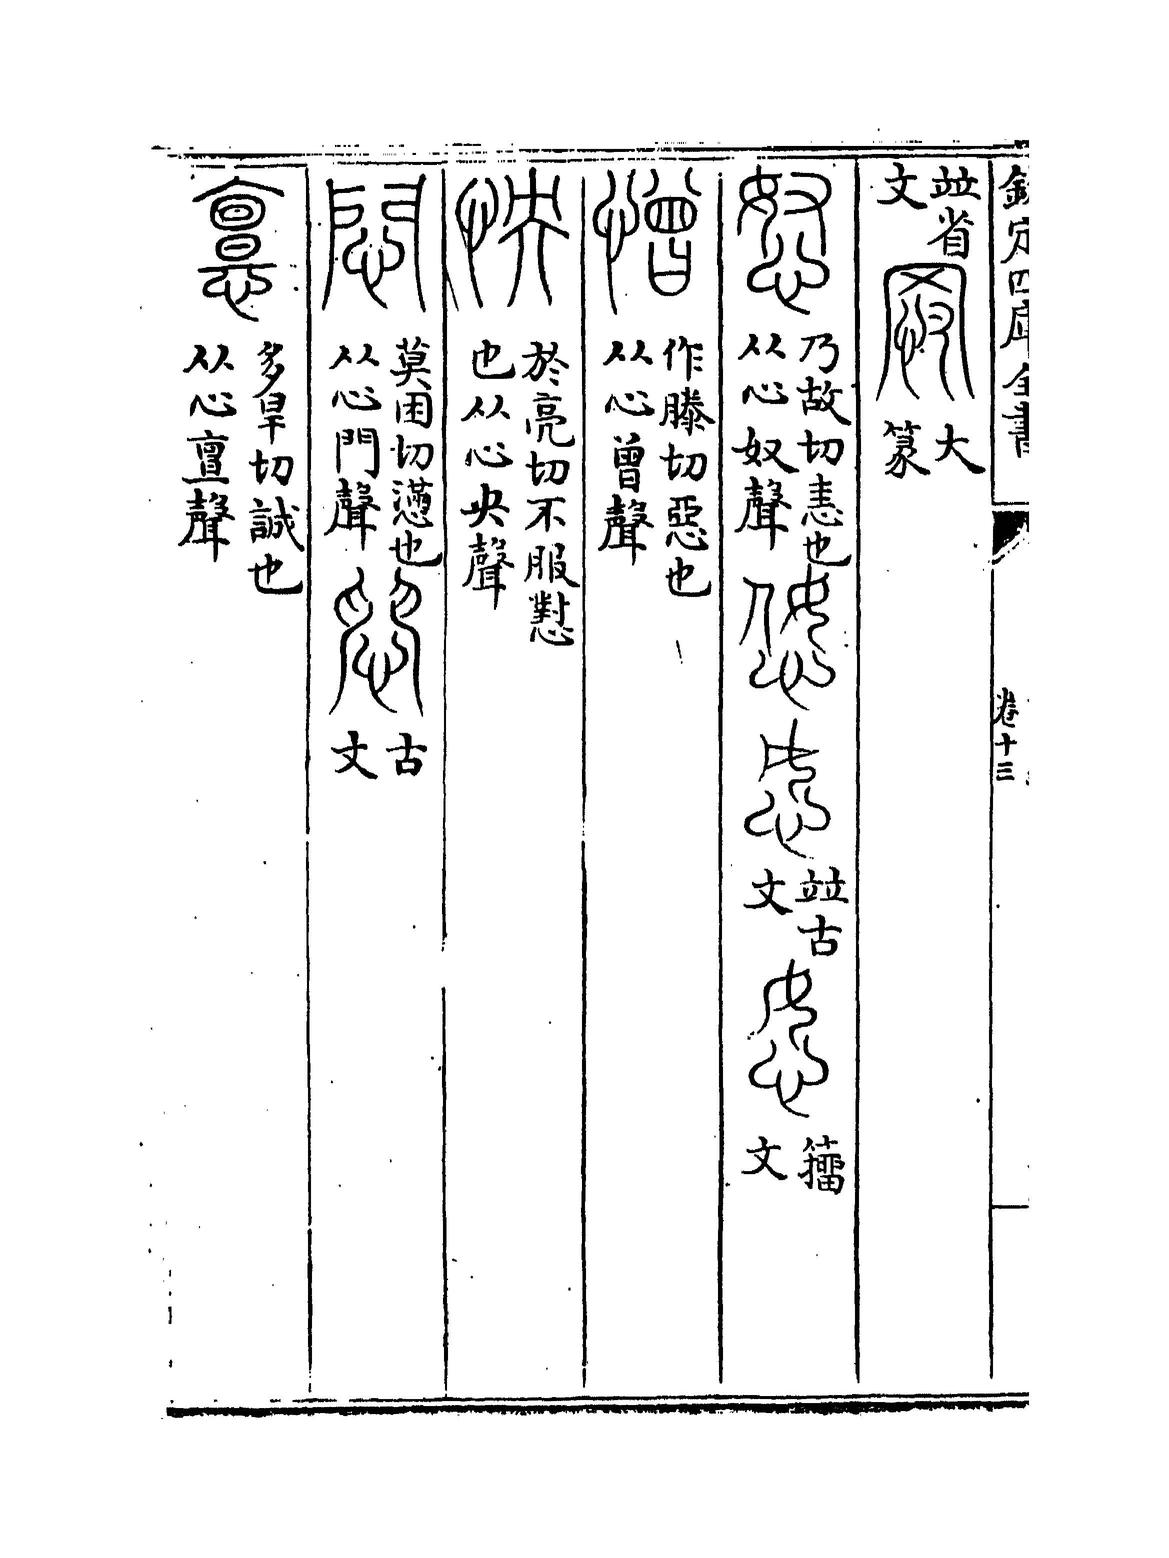 欽定四庫全書
卷十三
竝省文 大篆
怒 乃故切恚也从心奴聲 竝古文 籀文
憎 作滕切惡也从心曾聲
怏 於亮切不服懟也从心央聲
悶 莫困切懣也从心門聲 古文
多旱切誠也从心亶聲